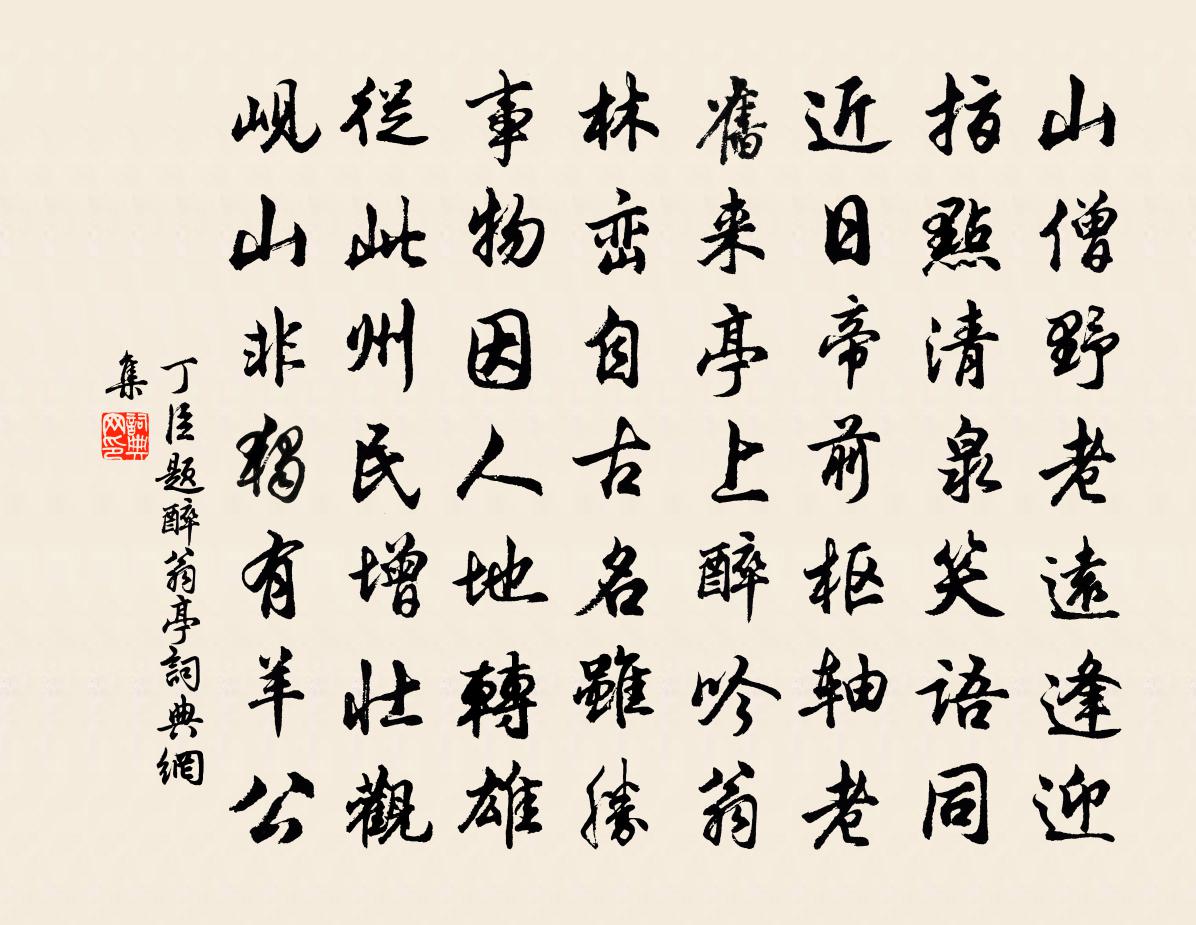 山僧野老遠逢迎
指點清泉笑語同
近日帝前枢轴老
舊来亭上醉吟翁
林峦自古名雖勝
事物因人地轉雄
從此州民增壯觀
峴山非獨有羊公
丁臣题醉翁亭詞典網
集
詞典网印